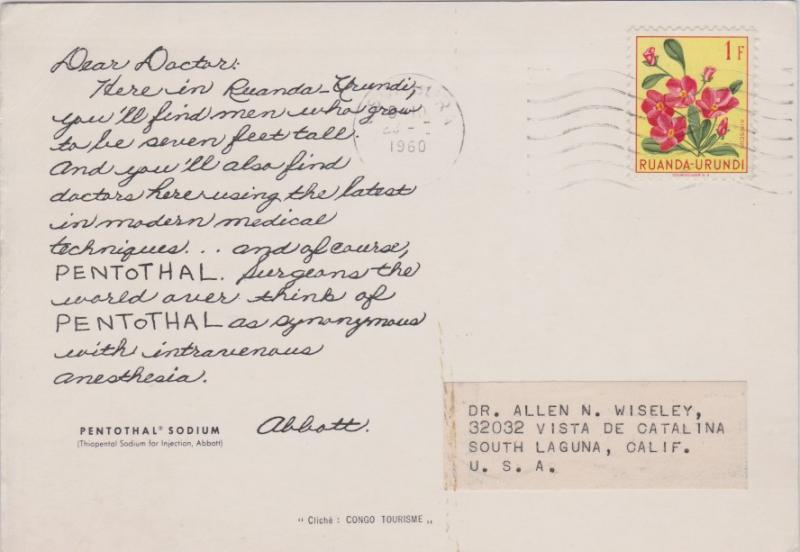 Dear Doctor:
Here in Ruanda-Urundi,
you'll find men who grow
to be seven feet tall.
And you'll also find
doctors here using the latest
in modern medical
techniques... and of course,
PENTOTHAL. Surgeons the
world over think of
PENTOTHAL as synonymous
with intravenous
anesthesia.
Abbott.
PENTOTHAL® SODIUM
(Thiopental Sodium for Injection, Abbott)
" Cliché : CONGO TOURISME „
1960
1 F
RUANDA-URUNDI
DR. ALLEN N. WISELEY,
32032 VISTA DE CATALINA
SOUTH LAGUNA, CALIF.
U. S. A.